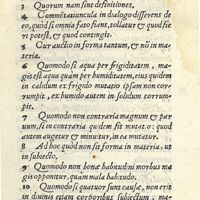 3 Quorum nam sint definitiones.
4 Commētatuncula in dialogo disserens de
eo, quod si omnia fato fiant, tollatur & quod fie
ri potest, & quod contingit.
5 Cur auctio in forma tantum, & nō in ma
teria.
6 Quomodo si aqua per frigiditatem, ma
gis est aqua quàm per humiditatem, eius quidem
in calidum ex frigido mutatio ipsam non corrum
pit, ex humido autem in solidum corrum
pit.
7 Quomodo non contraria magnum & par
uum, si in contraria quidem fit mutatio: quod
autem augetur & minuitur, in ea mutatur.
8 Ad hoc quod non sit in materia, ut
in subiecto,
9 Quomodo non bonæ habitudini morbus ma
gis opponitur, quàm mala habitudo.
10 Quomodo si quatuor sunt causæ, non erit
in diuinis etiam corporibus subiectum, ma